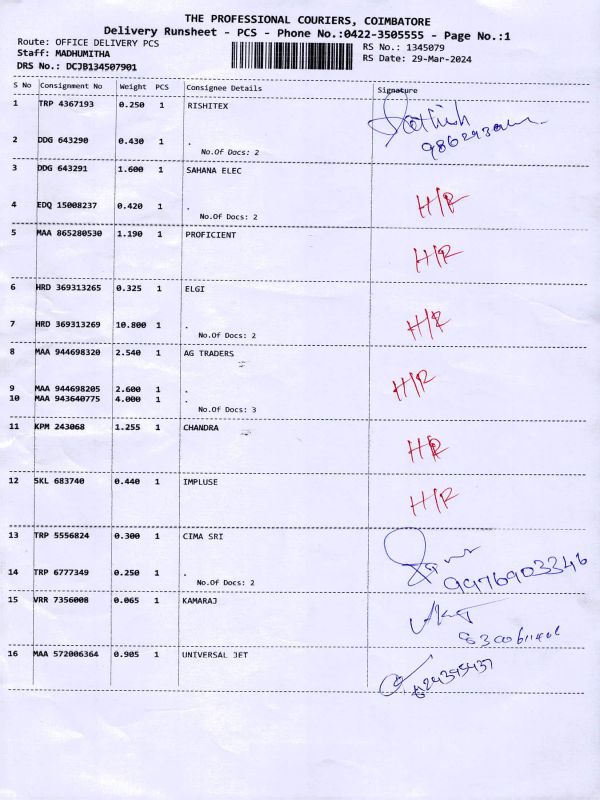 THE PROFESSIONAL COURIERS, COIMBATORE
Delivery Runsheet - PCS - Phone No.:0422-3505555 - Page No.:1
Route: OFFICE DELIVERY PCS
RS No.: 1345079
Staff: MADHUMITHA
RS Date: 29-Mar-2024
DRS No.: DCJB134507901
S No Consignment No Weight PCS Consignee Details Signature
1 TRP 4367193 0.250 1 RISHITEX
2 DDG 643290 0.430 1 .
No.Of Docs: 2
3 DDG 643291 1.600 1 SAHANA ELEC
4 EDQ 15008237 0.420 1 . H/R
No.Of Docs: 2
5 MAA 865280530 1.190 1 PROFICIENT
H/R
6 HRD 369313265 0.325 1 ELGI
7 HRD 369313269 10.800 1 . H/R
No.Of Docs: 2
8 MAA 944698320 2.540 1 AG TRADERS
9 MAA 944698205 2.600 1 . H/R
10 MAA 943640775 4.000 1 .
No.Of Docs: 3
11 KPM 243068 1.255 1 CHANDRA
H/R
12 SKL 683740 0.440 1 IMPLUSE
H/R
13 TRP 5556824 0.300 1 CIMA SRI
14 TRP 6777349 0.250 1 .
9976903346
No.Of Docs: 2
15 VRR 7356008 0.065 1 KAMARAJ
16 MAA 572006364 0.905 1 UNIVERSAL JET